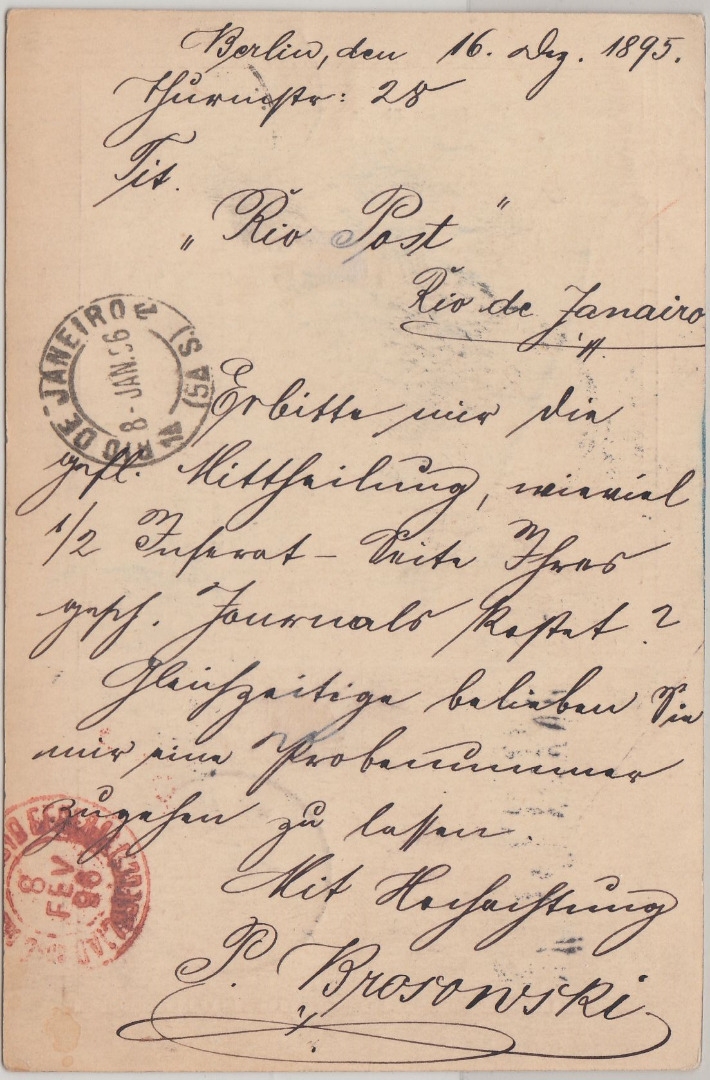 Berlin, den 16. Dez. 1895.
Thurmstr: 28
Tit.
„Rio Post"
Rio de Janairo
RIO DE JANEIRO
8-JAN.96
Erbitte mir die
gefl. Mittheilung, wieviel
1/2 Inserat-Seite Ihres
gesch. Journals kostet?
Gleichzeitige belieben Sie
mir eine Probenummer
zugehen zu lassen.
Mit Hochachtung
P. Brosowski
8
FEV
96